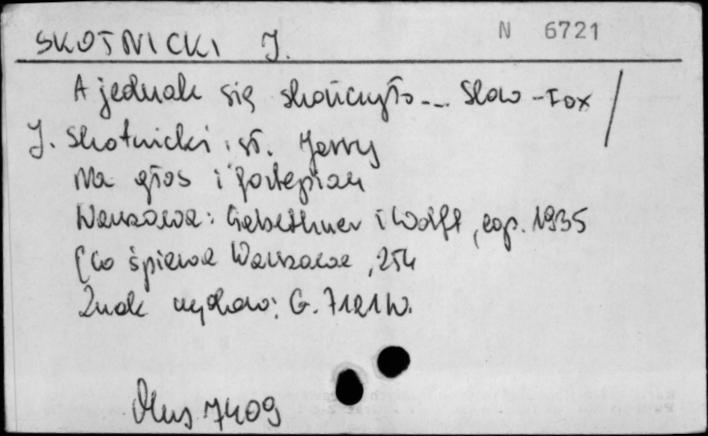 SKOTNICKI J. N 6721
A jednak się skończyło... Slow-Fox /
J. Skotnicki ; sł. Jerry
Na głos i fortepian
Warszawa: Gebethner i Wolff, cop. 1935
(Co śpiewa Warszawa, 254
Znak wydaw: G. 7121 W.
Mus 7409